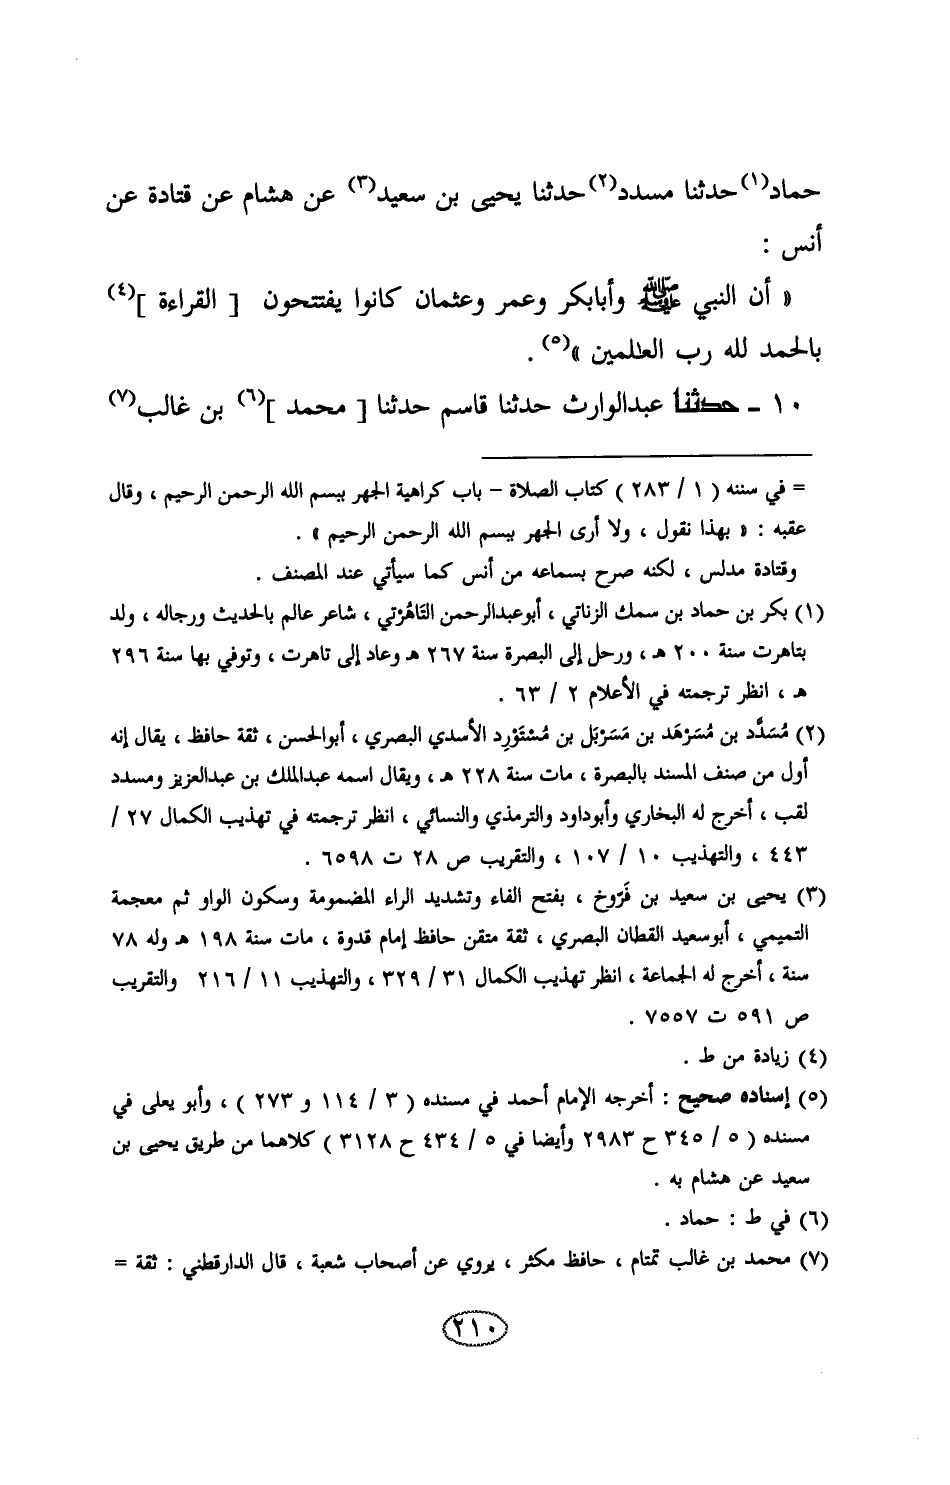 حماد(١) حدثنا مسدد(٢) حدثنا يحيى بن سعيد(٣) عن هشام عن قتادة عن
أنس :
« أن النبي ﷺ وأبابكر وعمر وعثمان كانوا يفتتحون [ القراءة ](٤)
بالحمد لله رب العالمين »(٥) .
١٠ - حدثنا عبدالوارث حدثنا قاسم حدثنا [ محمد ](٦) بن غالب(٧)
= في سننه ( ١ / ٢٨٣ ) كتاب الصلاة - باب كراهية الجهر ببسم الله الرحمن الرحيم ، وقال
عقبه : « بهذا نقول ، ولا أرى الجهر ببسم الله الرحمن الرحيم » .
وقتادة مدلس ، لكنه صرح بسماعه من أنس كما سيأتي عند المصنف .
(١) بكر بن حماد بن سمك الزناتي ، أبوعبدالرحمن التَّاهَرْتي ، شاعر عالم بالحديث ورجاله ، ولد
بتاهرت سنة ٢٠٠ هـ ، ورحل إلى البصرة سنة ٢٦٧ هـ وعاد إلى تاهرت ، وتوفي بها سنة ٢٩٦
هـ ، انظر ترجمته في الأعلام ٢ / ٦٣ .
(٢) مُسَدَّد بن مُسَرْهَد بن مَسَرْبَل بن مُسْتَوْرِد الأسدي البصري ، أبوالحسن ، ثقة حافظ ، يقال إنه
أول من صنف المسند بالبصرة ، مات سنة ٢٢٨ هـ ، ويقال اسمه عبدالملك بن عبدالعزيز ومسدد
لقب ، أخرج له البخاري وأبوداود والترمذي والنسائي ، انظر ترجمته في تهذيب الكمال ٢٧ /
٤٤٣ ، والتهذيب ١٠ / ١٠٧ ، والتقريب ص ٢٨ ت ٦٥٩٨ .
(٣) يحيى بن سعيد بن فَرّوخ ، بفتح الفاء وتشديد الراء المضمومة وسكون الواو ثم معجمة
التميمي ، أبوسعيد القطان البصري ، ثقة متقن حافظ إمام قدوة ، مات سنة ١٩٨ هـ وله ٧٨
سنة ، أخرج له الجماعة ، انظر تهذيب الكمال ٣١ / ٣٢٩ ، والتهذيب ١١ / ٢١٦ والتقريب
ص ٥٩١ ت ٧٥٥٧ .
(٤) زيادة من ط .
(٥) إسناده صحيح : أخرجه الإمام أحمد في مسنده ( ٣ / ١١٤ و ٢٧٣ ) ، وأبو يعلى في
مسنده ( ٥ / ٣٤٥ ح ٢٩٨٣ وأيضا في ٥ / ٤٣٤ ح ٣١٢٨ ) كلاهما من طريق يحيى بن
سعيد عن هشام به .
(٦) في ط : حماد .
(٧) محمد بن غالب تمتام ، حافظ مكثر ، يروي عن أصحاب شعبة ، قال الدارقطني : ثقة =
٢١٠